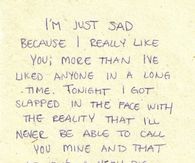 I'M JUST SAD
BECAUSE I REALLY LIKE
YOU; MORE THAN I'VE
LIKED ANYONE IN A LONG
TIME. TONIGHT I GOT
SLAPPED IN THE FACE WITH
THE REALITY THAT I'LL
NEVER BE ABLE TO CALL
YOU MINE AND THAT